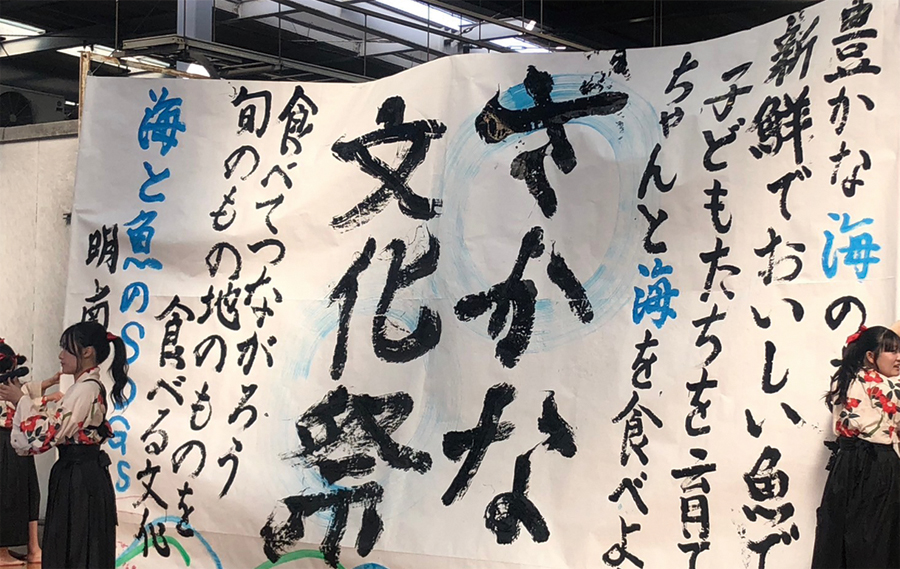 豊かな海の
新鮮でおいしい魚で
子どもたちを育て
ちゃんと海を食べよ
さかな
文化祭
食べてつながろう
旬のもの地のものを
食べる文化
海と魚のSDGs
明南